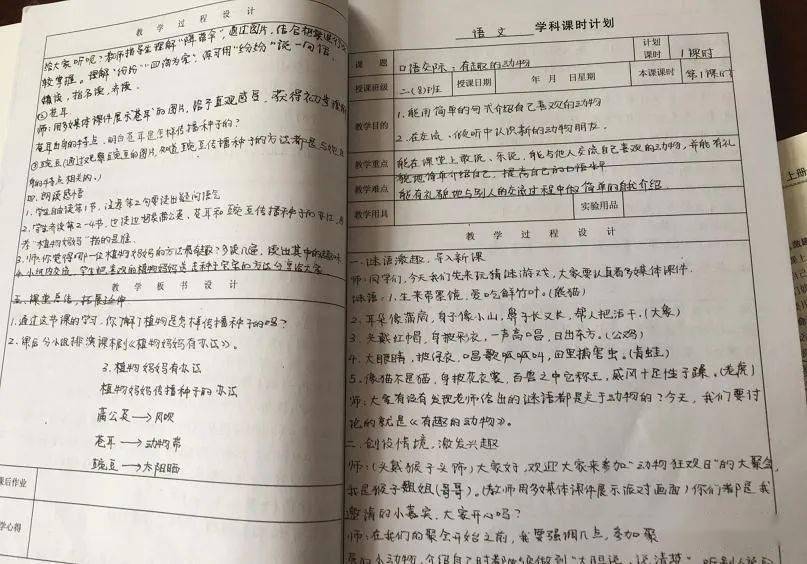 教 学 过 程 设 计
给大家听呢?教师指导学生理解“降落伞”通过图片,结合想象进行
较掌握。理解“纷纷”“四海为家”,源可用“纷纷”说一句话。
②苍耳
师:用多媒体课件展示苍耳的图片,给予直观感受,获得初步理解
苍耳自身的特点,明白苍耳是怎样传播种子的?
③豌豆(通过观察豌豆的图片,知道豌豆传播种子的方法都是与它
身的特点相关的。)
四、朗读感悟
1.学生自由读第1节,注意第2句要读出疑问语气
植物妈妈”指的是谁
3.师:你觉得哪一位植物妈妈的方法最有趣?多读几遍,读出其中的趣味
4.小组内交流,学生把喜欢的植物妈妈送走种子宝宝的方法分享给大家
教 学 板 书 设 计
五、课堂总结,拓展延伸
1.通过这节课的学习,你了解了植物是怎样传播种子的吗?
2.课后分小组排演课本剧《植物妈妈有办法》。
3.植物妈妈有办法
植物妈妈传播种子的办法
蒲公英→风吹
苍耳→动物带
豌豆→太阳晒
课后作业
学心得
语文 学科课时计划
课 题 口语交际:有趣的动物 计划课时 1课时
授课班级 二(8)班 授课日期 年 月 日星期 本课课时 第1课时
教学目的 1.能用简单的句式介绍自己喜欢的动物
2.在交流、倾听中认识新的动物朋友.
教学重点 能在课堂上敢说、乐说,能与他人交流自己喜欢的动物,并能有礼
貌地简单介绍自己,提高自己的口语水平
教学难点 能有礼貌地与别人的交流过程中做简单的自我介绍
教学用具 实验用品
教 学 过 程 设 计
一.谜语激趣,导入新课
师:同学们,今天我们先来玩猜谜游戏,大家要认真看多媒体课件.
谜语:1.生来带墨镜,爱吃鲜竹叶。(熊猫)
2.耳朵像蒲扇,身子像小山,鼻子长又长,帮人把活干.(大象)
3.头戴红帽,身披彩衣,一声高唱,日出东方。(公鸡)
4.大眼睛,披绿衣,唱歌呱呱叫,田里捕害虫。(青蛙)
5.像猫不是猫,身披花衣裳,百兽之中它称王,威风十足性子躁。(老虎)
师:大家有没有发现老师给出的谜语都是关于动物的?今天,我们要讨
论的就是《有趣的动物》。
二.创设情境,激发兴趣
师:(头戴猴子头饰)大家好,欢迎大家来参加“动物狂欢日”的大聚会
我是猴子姐姐(哥哥)。(教师用多媒体课件展示派对画面)你们都是我
邀请的小嘉宾,大家开心吗?
师:在我们的聚会开始之前,我要强调几点,参加聚
上册